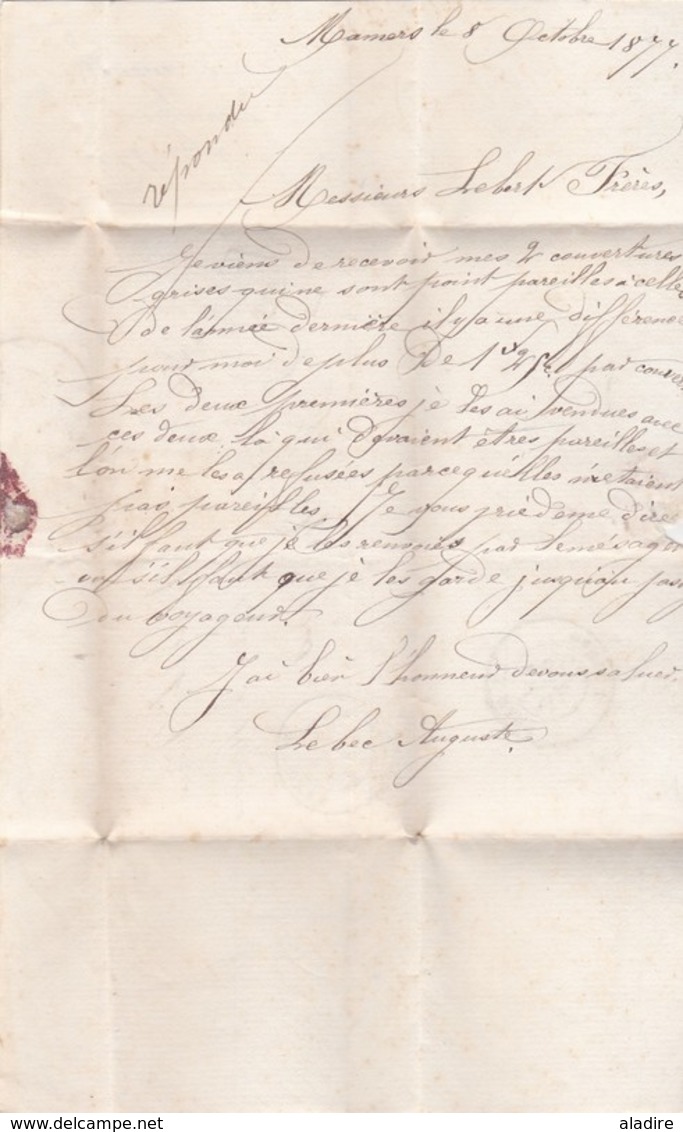 Mamers le 8 Octobre 1877.
répondu
Messieurs Lebert Frères,
Je viens de recevoir mes 2 couvertures
grises qui ne sont point pareilles à celles
de l'année dernière il y a une différence
pour moi de plus De par couver
Les deux premières je les ai vendues avec
ces deux là qui devaient êtres pareilles et
l'on me les a refusées parcequ'elles n'étaient
pas pareilles. Je vous prie de me dire
s'il faut que je les renvois par le mésager
ou s'il faut que je les garde jusqu'au pas
du voyageur.
J'ai bien l'honneur de vous saluer.
Lebec Auguste.
aladire